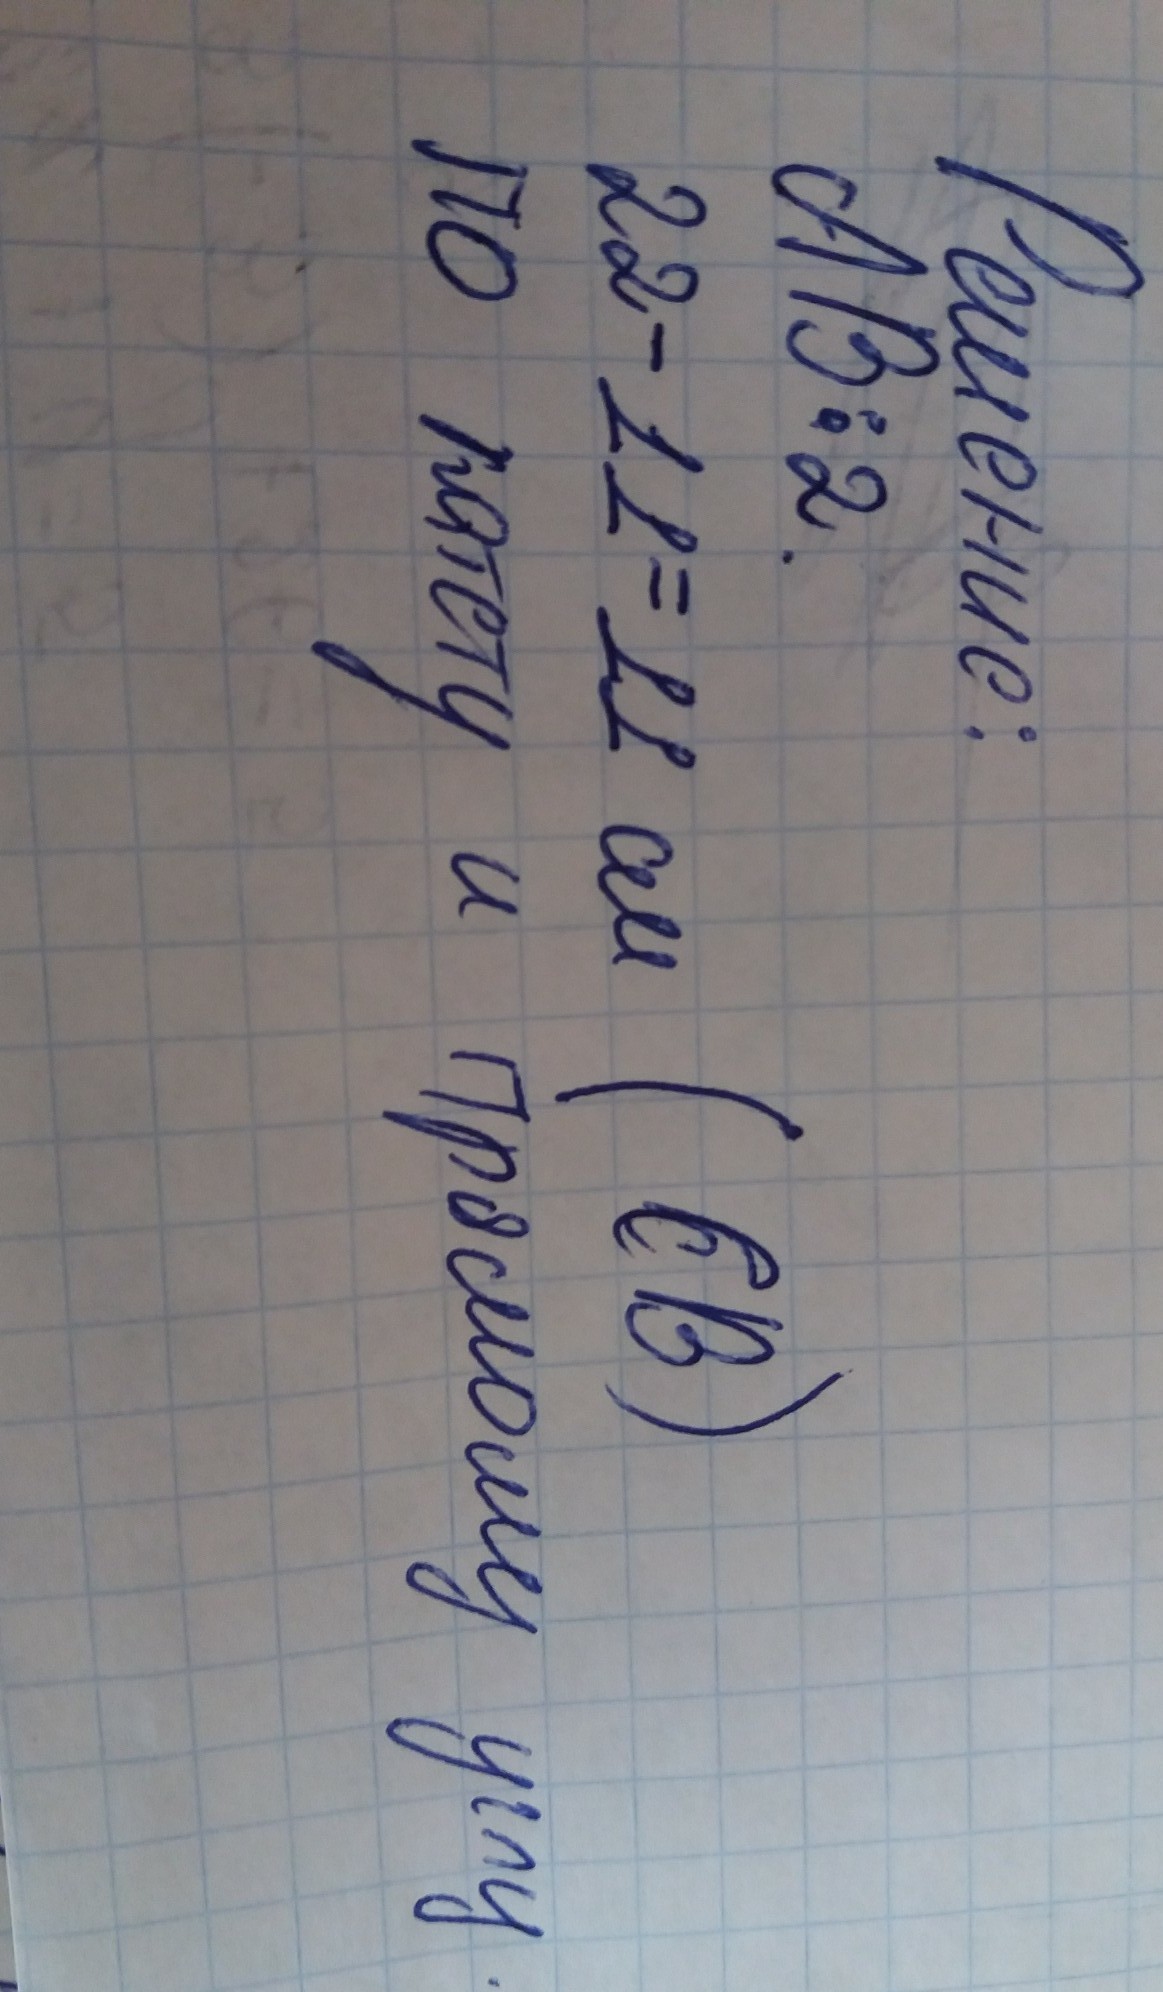 Решение:
АВ:2.
22-11=11 см (СВ)
по катету и прямому углу.